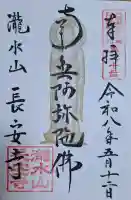 奉拝
令和八年五月十二日
南無阿弥陀佛
瀧水山
長安寺
瀧水山